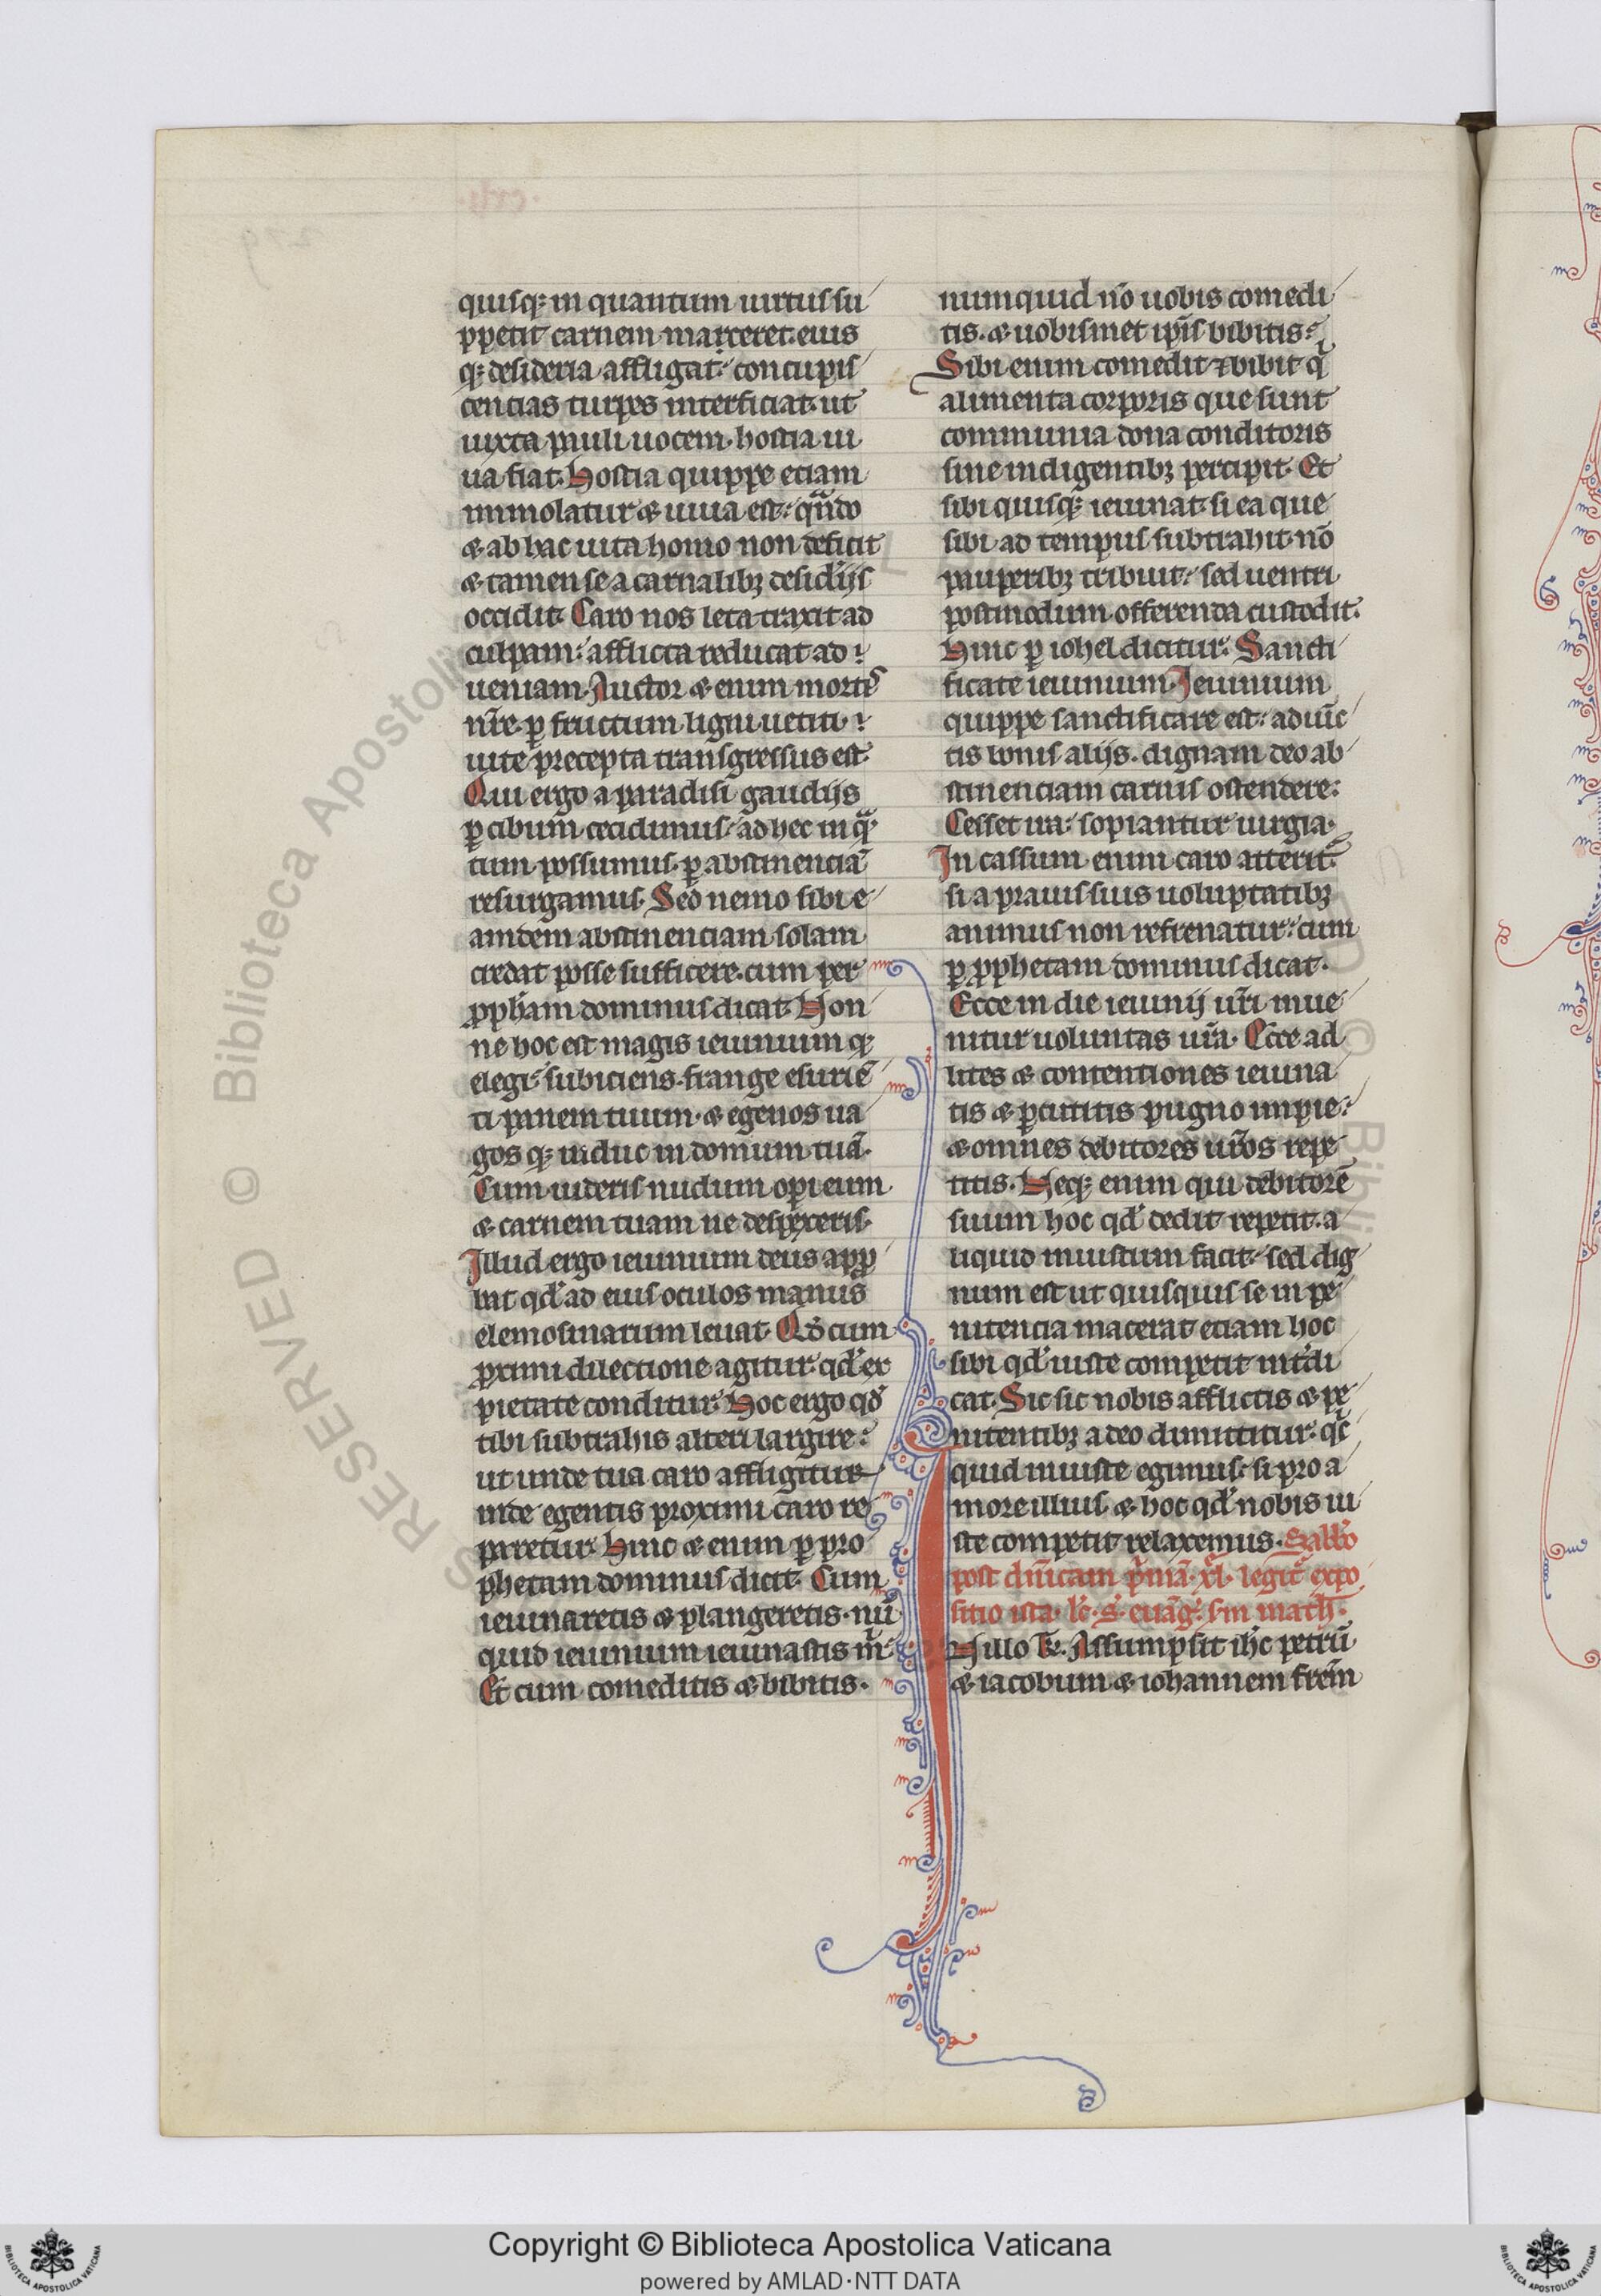 quisq; in quantum uirtus su
ppetit carnem marceret. eius
q; desideria affligat: concupis
cencias turpes interficiat. ut
iuxta pauli uocem. hostia ui
ua fiat. Hostia quippe etiam
immolatur & uiua est: qn̄do
& ab hac uita homo non deficit
& tamen se a carnalib; desid'ijs
occidit. Caro nos leta traxit ad
culpam: afflicta reducat ad
ueniam. Auctor & enim mortis
nr̄e. ꝑ fructum ligni uetiti
uite precepta transgressus est.
Qui ergo a paradisi gaudijs
ꝑ cibum cecidimus: ad hec in qͣ
tum possumus. ꝑ abstinenciā
resurgamus. Sed nemo sibi e
amdem abstinenciam solam
credat posse sufficere. cum per
ꝓph'am dominus dicat. Non
ne hoc est magis ieiunium q;
elegi: subiciens. frange esuriē
ti panem tuum. & egenos ua
gos q; induc in domum tuā.
Cum uideris nudum operi eum
& carnem tuam ne despexeris.
Illud ergo ieiunium deus apꝓ
bat qd' ad eius oculos manus
elemosinarum leuat. Qd' cum
ꝓximi dilectione agitur. qd' ex
pietate conditur. Hoc ergo qd'
tibi subtrahis alteri largire:
ut unde tua caro affligitur
inde egentis proximi caro re
paretur. Hinc & enim ꝑ pro
phetam dominus dicit. Cum
ieiunaretis & plangeretis. nū
quid ieiunium ieiunastis m:
Et cum comeditis & bibitis.
numquid nō uobis comedi
tis. & uobismet ip̄is bibitis:
Sibi enim comedit ⁊ bibit q
alimenta corporis que sunt
communia dona conditoris
sine indigentib; percipit. Et
sibi quisq; ieiunat. si ea que
sibi ad tempus subtrahit. nō
pauperib; tribuit: sed uentri
postmodum offerenda custodit.
Hinc ꝑ iohel dicitur. Sancti
ficate ieiunium. Ieiunium
quippe sanctificare est: adiūc
tis bonis alijs. dignam deo ab
stinenciam carnis ostendere:
Cesset ira: sopiantur iurgia.
In cassum enim caro atterit:
si a prauis suis uoluptatib;
animus non refrenatur: cum
ꝑ ꝓphetam dominus dicat.
Ecce in die ieiunij ur̄i inue
nitur uoluntas ur̄a. Ecce ad
lites & contentiones ieiuna
tis & ꝑcutitis pugno impie:
& omnes debitores ur̄os repe
titis. Neq; enim qui debitorē
suum hoc qd' dedit repetit. a
liquid iniustum facit: sed dig
num est ut quisquis se in pe
nitencia macerat etiam hoc
sibi qd' iuste competit int'di
cat. Sic sic nobis afflictis & pe
nitentib; a deo dimittitur. qc
quid iniuste egimus: si pro a
more illius & hoc qd' nobis iu
ste competit relaxemus. Sabb'o
post dn̄icam p'mā. xl. legit' expo
sitio ista. lc̄. s'. euāg'. s'm math'.
N illo t̄. Assumpsit ih'c petrū
& iacobum & iohannem frēm
Copyright © Biblioteca Apostolica Vaticana
powered by AMLAD·NTT DATA